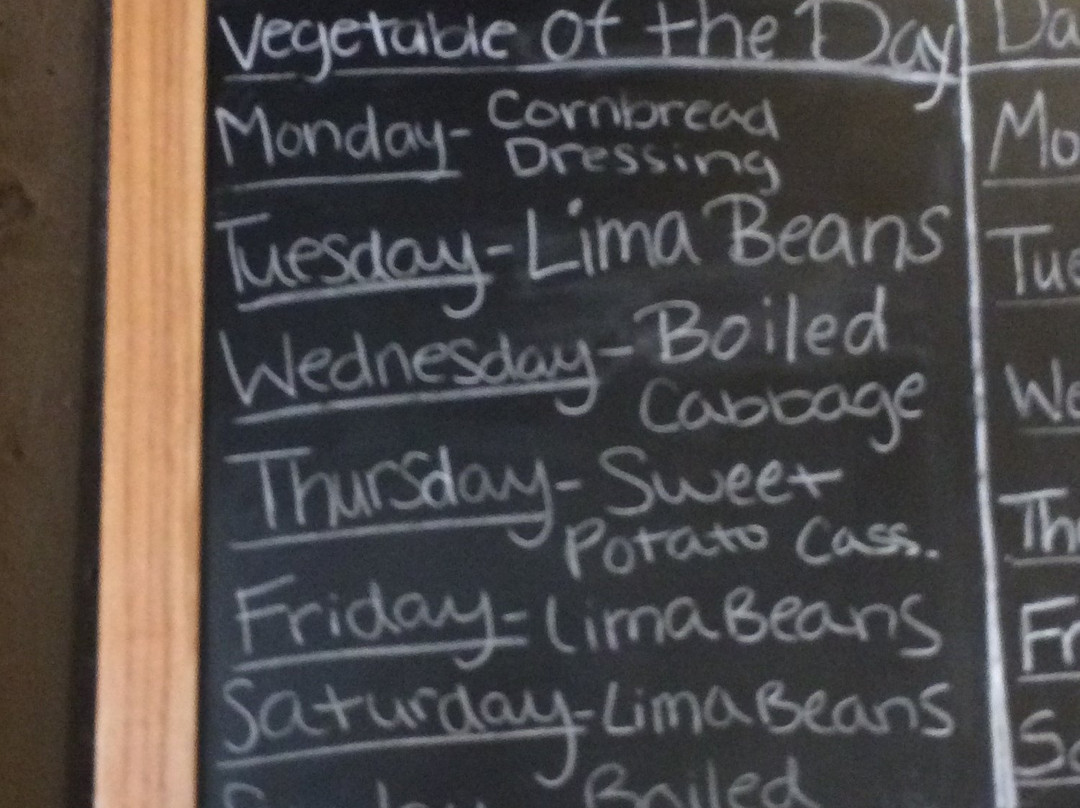 Vegetable of the Day
Monday- Cornbread
Dressing
Tuesday-Lima Beans
Wednesday-Boiled
Cabbage
Thursday- Sweet
Potato Cass.
Friday-Lima Beans
Saturday-Lima Beans
Boiled
Da
Mo
Tue
We
Th
Fr
Sa